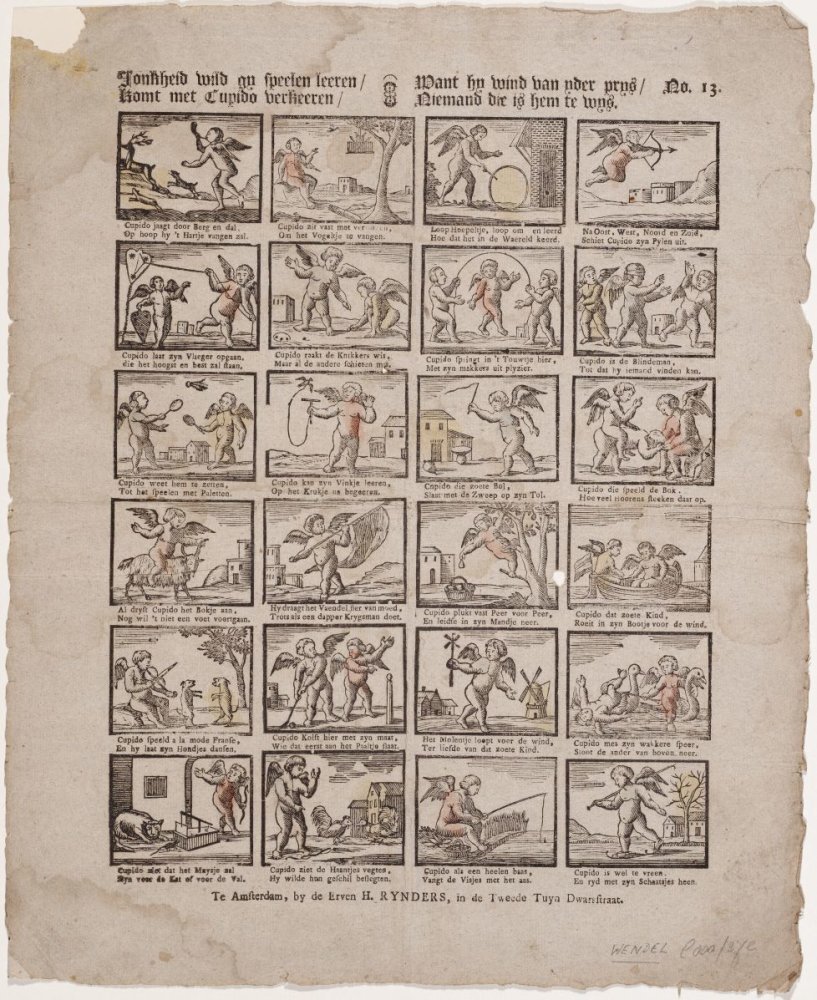 Jonkheid wild gy speelen leeren/
Komt met Cupido verkeeren/
Want hy wind van yder prys/
Niemand die is hem te wys.
No. 13.
Cupido jaagt door Berg en dal.
Op hoop hy 't Hartje vangen zal.
Cupido zit vast met
Om het Vogeltje te vangen.
Loop Heepeltje, loop om en leerd
Hoe dat het in de Waereld keerd.
Na Oost, West, Noord en Zuid,
Schiet Cupido zyn Pylen uit.
Cupido laat zyn Vlieger opgaan,
die het hoogst en best zal staan.
Cupido raakt de Knikkers wis,
Maar al de andere schieten mis.
Cupido springt in 't Touwtje hier,
Met zyn makkers uit plyzier.
Cupido is de Blindeman,
Tot dat hy iemand vinden kan.
Cupido weet hem te zetten,
Tot het speelen met Paletten.
Cupido kan zyn Vinkje leeren,
Op het Krukje na begeeren.
Cupido die zoete Bol,
Slaat met de Zweep op zyn Tol.
Cupido die speeld de Bok.
Hoe veel Hoorens steeken daar op.
Al dryft Cupido het Bokje aan,
Nog wil 't niet een voet voortgaan.
Hy draagt het Vaendel fier van moed,
Trots als een dapper Krygsman doet.
Cupido plukt vast Peer voor Peer,
En leidse in zyn Mandje neer.
Cupido dat zoete Kind,
Roeit in zyn Bootje voor de wind.
Cupido speeld a la mode Franse,
En hy laat zyn Hondjes dansen.
Cupido Kolft hier met zyn maat,
Wie dat eerst aan het Paaltje slaat.
Het Molentje loopt voor de wind,
Ter liefde van dat zoete Kind.
Cupido met zyn wakkere speer,
Stoot de ander van boven neer.
Cupido ziet dat het Muysje zal
Zyn voor de Kat of voor de Val.
Cupido ziet de Haantjes vegten,
Hy wilde hun geschil beslegten.
Cupido als een heelen baas,
Vangt de Visjes met het aas.
Cupido is wel te vreen.
En ryd met zyn Schaatsjes heen.
Te Amsterdam, by de Erven H. RYNDERS, in de Tweede Tuyn Dwarsstraat.
WENDEL